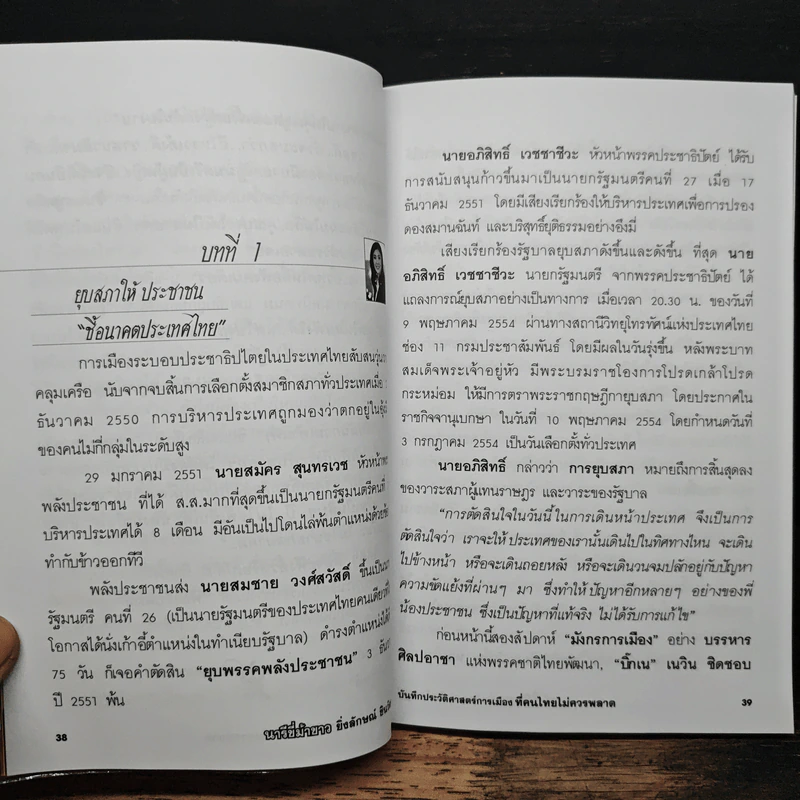 บทที่ 1
ยุบสภาให้ ประชาชน
"ชี้อนาคตประเทศไทย"
การเมืองระบอบประชาธิปไตยในประเทศไทยสับสนวุ่นวาย
คลุมเครือ นับจากจบสิ้นการเลือกตั้งสมาชิกสภาทั่วประเทศเมื่อ
ธันวาคม 2550 การบริหารประเทศถูกมองว่าตกอยู่ใน
ของคนไม่กี่กลุ่มในระดับสูง
29 มกราคม 2551 นายสมัคร สุนทรเวช หัวหน้าพรรค
พลังประชาชน ที่ได้ ส.ส.มากที่สุดขึ้นเป็นนายกรัฐมนตรีคนที่
บริหารประเทศได้ 8 เดือน มีอันเป็นไปโดนไล่พ้นตำแหน่งด้วยข้อ
ทำกับข้าวออกทีวี
พลังประชาชนส่ง นายสมชาย วงศ์สวัสดิ์ ขึ้นเป็นนายก
รัฐมนตรี คนที่ 26 (เป็นนายรัฐมนตรีของประเทศไทยคนเดียวที่ไม่
โอกาสได้นั่งเก้าอี้ตำแหน่งในทำเนียบรัฐบาล) ดำรงตำแหน่งได้
75 วัน ก็เจอคำตัดสิน "ยุบพรรคพลังประชาชน" 3 ธันวา
ปี 2551 พ้น
38
นารีขี่ม้าขาว ยิ่งลักษณ์ ชินวัตร
นายอภิสิทธิ์ เวชชาชีวะ หัวหน้าพรรคประชาธิปัตย์ ได้รับ
การสนับสนุนก้าวขึ้นมาเป็นนายกรัฐมนตรีคนที่ 27 เมื่อ 17
ธันวาคม 2551 โดยมีเสียงเรียกร้องให้บริหารประเทศเพื่อการปรอง
ดองสมานฉันท์ และบริสุทธิ์ยุติธรรมอย่างอึงมี่
เสียงเรียกร้องรัฐบาลยุบสภาดังขึ้นและดังขึ้น ที่สุด นาย
อภิสิทธิ์ เวชชาชีวะ นายกรัฐมนตรี จากพรรคประชาธิปัตย์ ได้
แถลงการณ์ยุบสภาอย่างเป็นทางการ เมื่อเวลา 20.30 น. ของวันที่
9 พฤษภาคม 2554 ผ่านทางสถานีวิทยุโทรทัศน์แห่งประเทศไทย
ช่อง 11 กรมประชาสัมพันธ์ โดยมีผลในวันรุ่งขึ้น หลังพระบาท
สมเด็จพระเจ้าอยู่หัว มีพระบรมราชโองการโปรดเกล้าโปรด
กระหม่อม ให้มีการตราพระราชกฤษฎีกายุบสภา โดยประกาศใน
ราชกิจจานุเบกษา ในวันที่ 10 พฤษภาคม 2554 โดยกำหนดวันที่
3 กรกฎาคม 2554 เป็นวันเลือกตั้งทั่วประเทศ
นายอภิสิทธิ์ กล่าวว่า การยุบสภา หมายถึงการสิ้นสุดลง
ของวาระสภาผู้แทนราษฎร และวาระของรัฐบาล
"การตัดสินใจในวันนี้ ในการเดินหน้าประเทศ จึงเป็นการ
ตัดสินใจว่า เราจะให้ประเทศของเรานั้นเดินไปในทิศทางไหน จะเดิน
ไปข้างหน้า หรือจะเดินถอยหลัง หรือจะเดินวนจมปลักอยู่กับปัญหา
ความขัดแย้งที่ผ่านๆ มา ซึ่งทำให้ปัญหาอีกหลายๆ อย่างของพี่
น้องประชาชน ซึ่งเป็นปัญหาที่แท้จริง ไม่ได้รับการแก้ไข"
ก่อนหน้านี้สองสัปดาห์ "มังกรการเมือง" อย่าง บรรหาร
ศิลปอาชา แห่งพรรคชาติไทยพัฒนา, "บิ๊กเน" เนวิน ชิดชอบ
บันทึกประวัติศาสตร์การเมือง ที่คนไทยไม่ควรพลาด
39